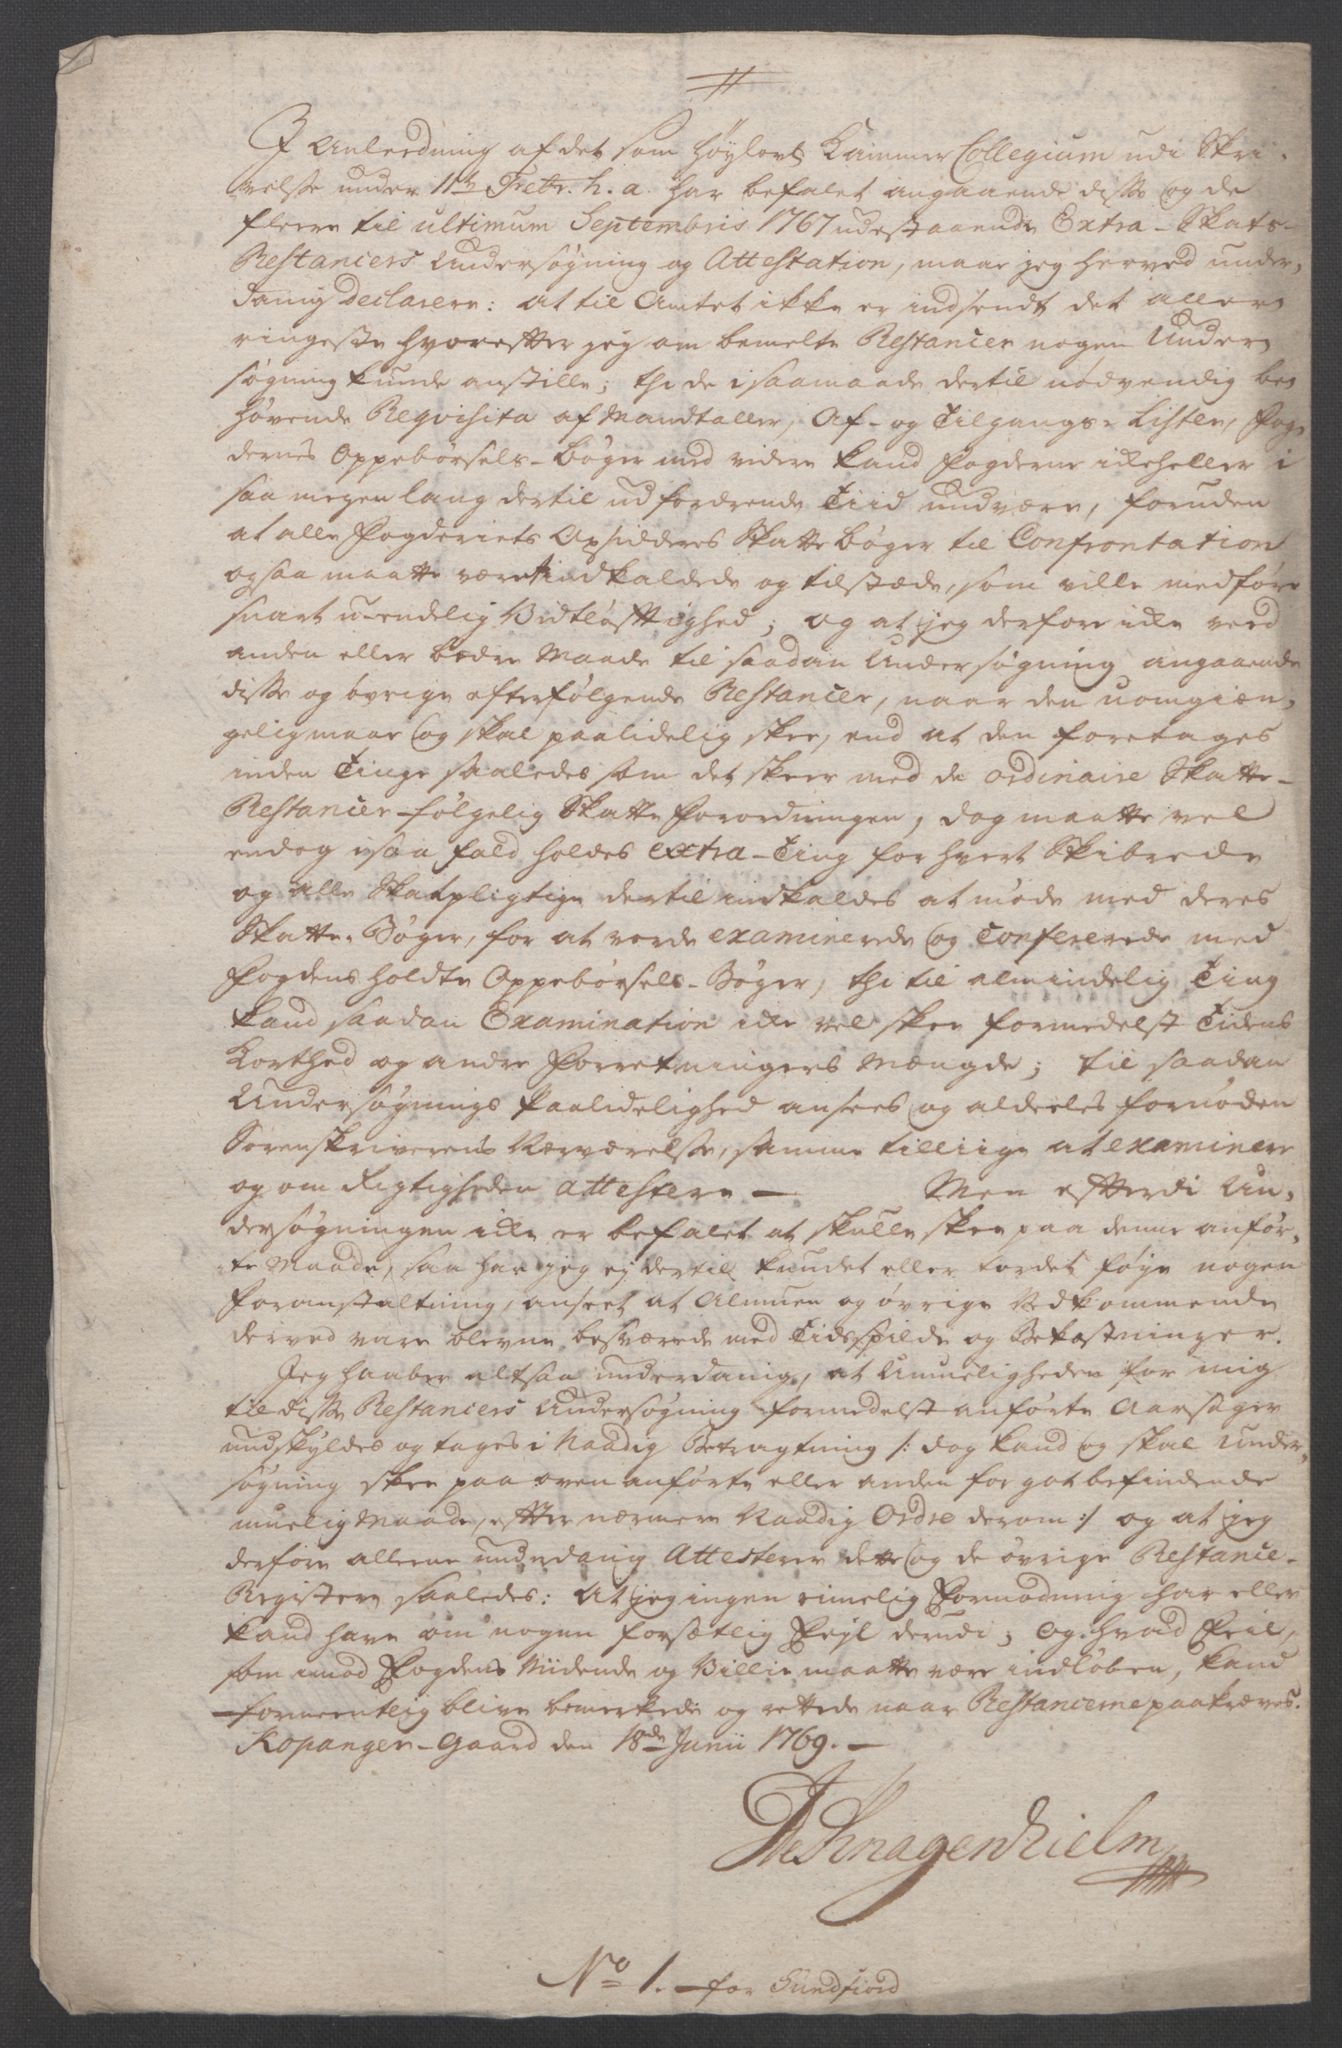 I Anledning af det som Höylovl. Kammer Collegium udi Skri-
velse under 11te Febr. h. a. har befalet angaaende disse og de
fleere til ultimum Septembris 1767 udestaaende Extra-Skats-
Restancers Undersøgning og Attestation, maae jeg herved under-
danig Declarere: at til Amtet ikke er indsendt det aller-
ringeste hvorefter jeg om bemelte Restancer nogen Under-
søgning kunde anstille; thi de i saamaade dertil nødvendig be-
høvende Requisita af Mandtaller, Af- og Tilgangs-Lister, Fog-
dernes Oppebørsels-Bøger med videre kand Fogderne ikke heller i
saa megen lang dertil udfordrende Tiid undvære, foruden
at alle Fogderiets Opsidderes Skatte Bøger til Confrontation
ogsaa maatte være indkaldede og tilstæde, som ville medføre
snart u-endelig Vidtløftighed; og at jeg derfore ikke veed
anden eller bedre Maade til saadan Undersøgning angaaende
disse og øvrige efterfølgende Restancer, naar den uomgiæn-
gelig maae og skal paalidelig skee, end at den foretages
inden Tinge saaledes som det skeer med de ordinaire Skatte-
Restancer følgelig Skatte Forordningen, dog maatte vel
endog i saa fald holdes extra-Ting for hvert Skibrede
og alle Skatpligtige dertil indkaldes at møde med deres
Skatte-Bøger, for at vorde examinerede og Confererede med
Fogdens holdte Oppebørsels-Bøger, thi til almindelig Ting
kand saadan Examination ikke vel skee formedelst Tidens
Korthed og andre Forretningers Mængde; til saadan
Undersøgnings Paalidelighed ansees og aldeeles fornøden
Sorenskriverens Nærværelse, samme tilliige at examinere
og om Rigtigheden attestere — Men efterdi Un-
dersøgningen ikke er befalet at skulle skee paa denne anfør-
te Maade, saa har jeg ej dertil kundet eller tordet føye nogen
Foranstaltning, anseet at Almuen og øvrige Vedkommende
derved vare blevne besværede med Tidsspilde og Bekostninger.
Jeg haaber altsaa underdanig, at Umueligheden for mig
til disse Restancers Undersøgning formedelst anførte Aarsager
undskyldes og tages i Naadig Betragtning /: dog kand og skal Under-
søgning skee paa ovenanførte eller anden for got befindende
muelig Maade, efter nærmere Naadig Ordre derom :/ og at jeg
derfore alleene underdanig Attesterer dette og de øvrige Restance-
Registere saaledes: At jeg ingen rimelig Formodning har eller
kand have om nogen forsætlig Feyl derudi; og hvad Feil,
som imod Fogdens Viidende og Villie maatte være indløben, kand
formeentlig blive bemerkede og rettede naar Restancerne paakræves.
Kopanger-Gaard den 18de Junii 1769. —
De Knagenhielm
No 1. — for Sundfiord